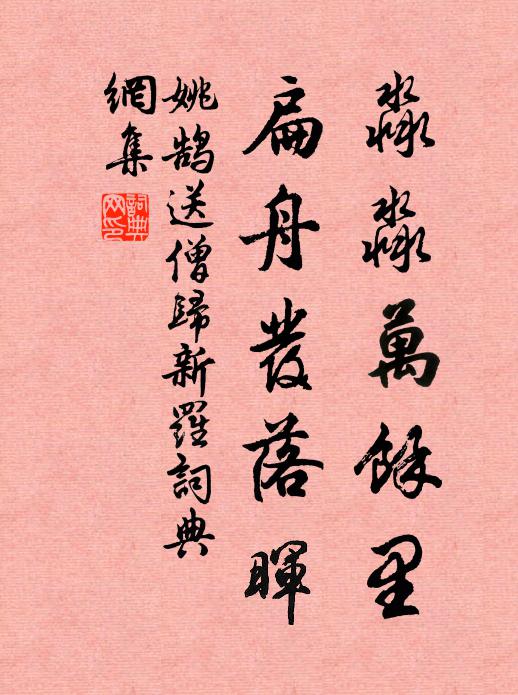 淼淼萬餘里
扁舟發落暉
姚鵠送僧歸新羅詞典
網集
詞典網印